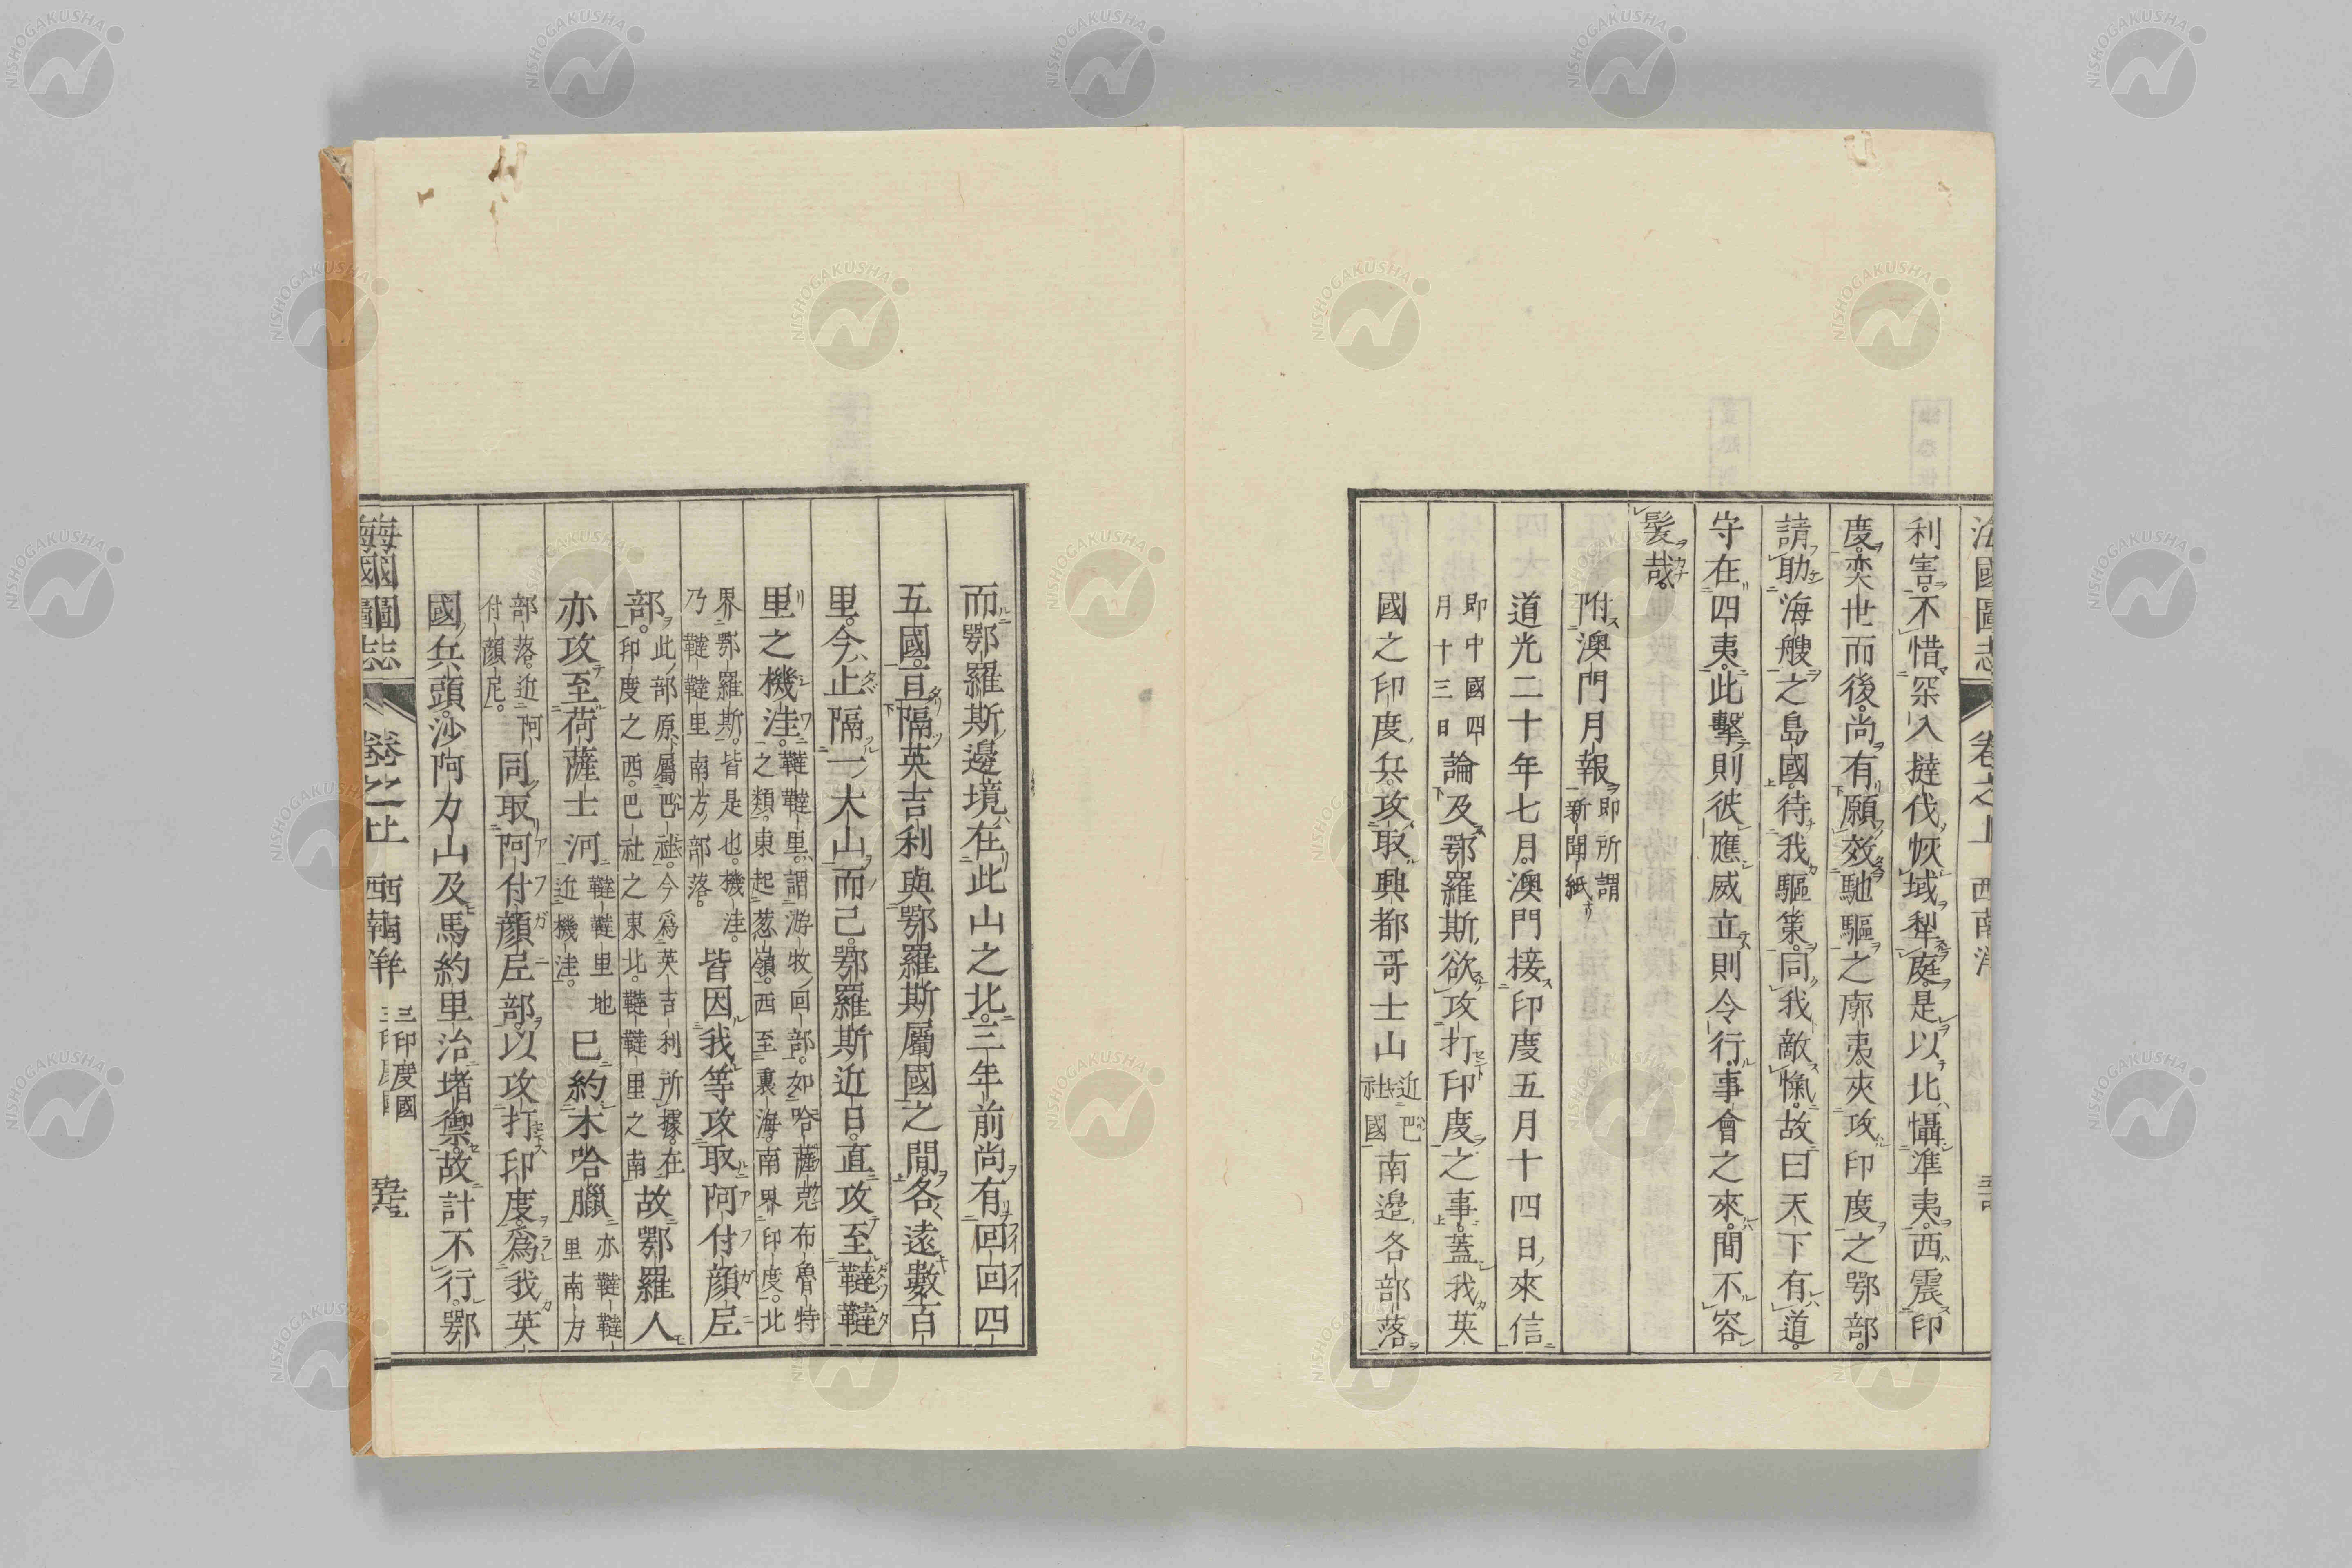 海國圖志 卷之上 西南洋
利害。不惜罙入撻伐恢域犁庭。是以北懾準夷。西震印
度。奕世而後。尚有願效馳驅之廓夷。夾攻印度之鄂部。
請助海艘之島國。待我驅策。同我敵愾。故曰天下有道。
守在四夷。此擊則彼應。威立則令行。事會之來。間不容
髮哉。
附澳門月報
即所謂
新聞紙
道光二十年七月。澳門接印度五月十四日來信
即中國四
月十三日
論及鄂羅斯欲攻打印度之事。蓋我英
國之印度兵。攻取興都哥士山
近巴
社國
南邊各部落。
而鄂羅斯邊境在此山之北。三年前尚有回回四
五國。亘隔英吉利與鄂羅斯屬國之間。各遠數百
里。今止隔一大山而已。鄂羅斯近日。直攻至韃韃
里之機洼。
韃韃里。謂游牧回部。如哈薩克布魯特
之類。東起葱嶺。西至裏海。南界印度。北
界鄂羅斯。皆是也。機洼。
乃韃韃里南方部落。
皆因我等攻取阿付顏尼
部。
此部原屬巴社。今爲英吉利所據。在
印度之西。巴社之東北。韃韃里之南
故鄂羅人
亦攻至荷薩士河
韃韃里地
近機洼。
巳約木哈臘
亦韃韃
里南方
部落。近阿
付顏尼。
同取阿付顏尼部。以攻打印度。爲我英
國兵頭沙阿力山及馬約里治堵禦。故計不行。鄂
海國圖志 卷之上 西南洋 三印度國